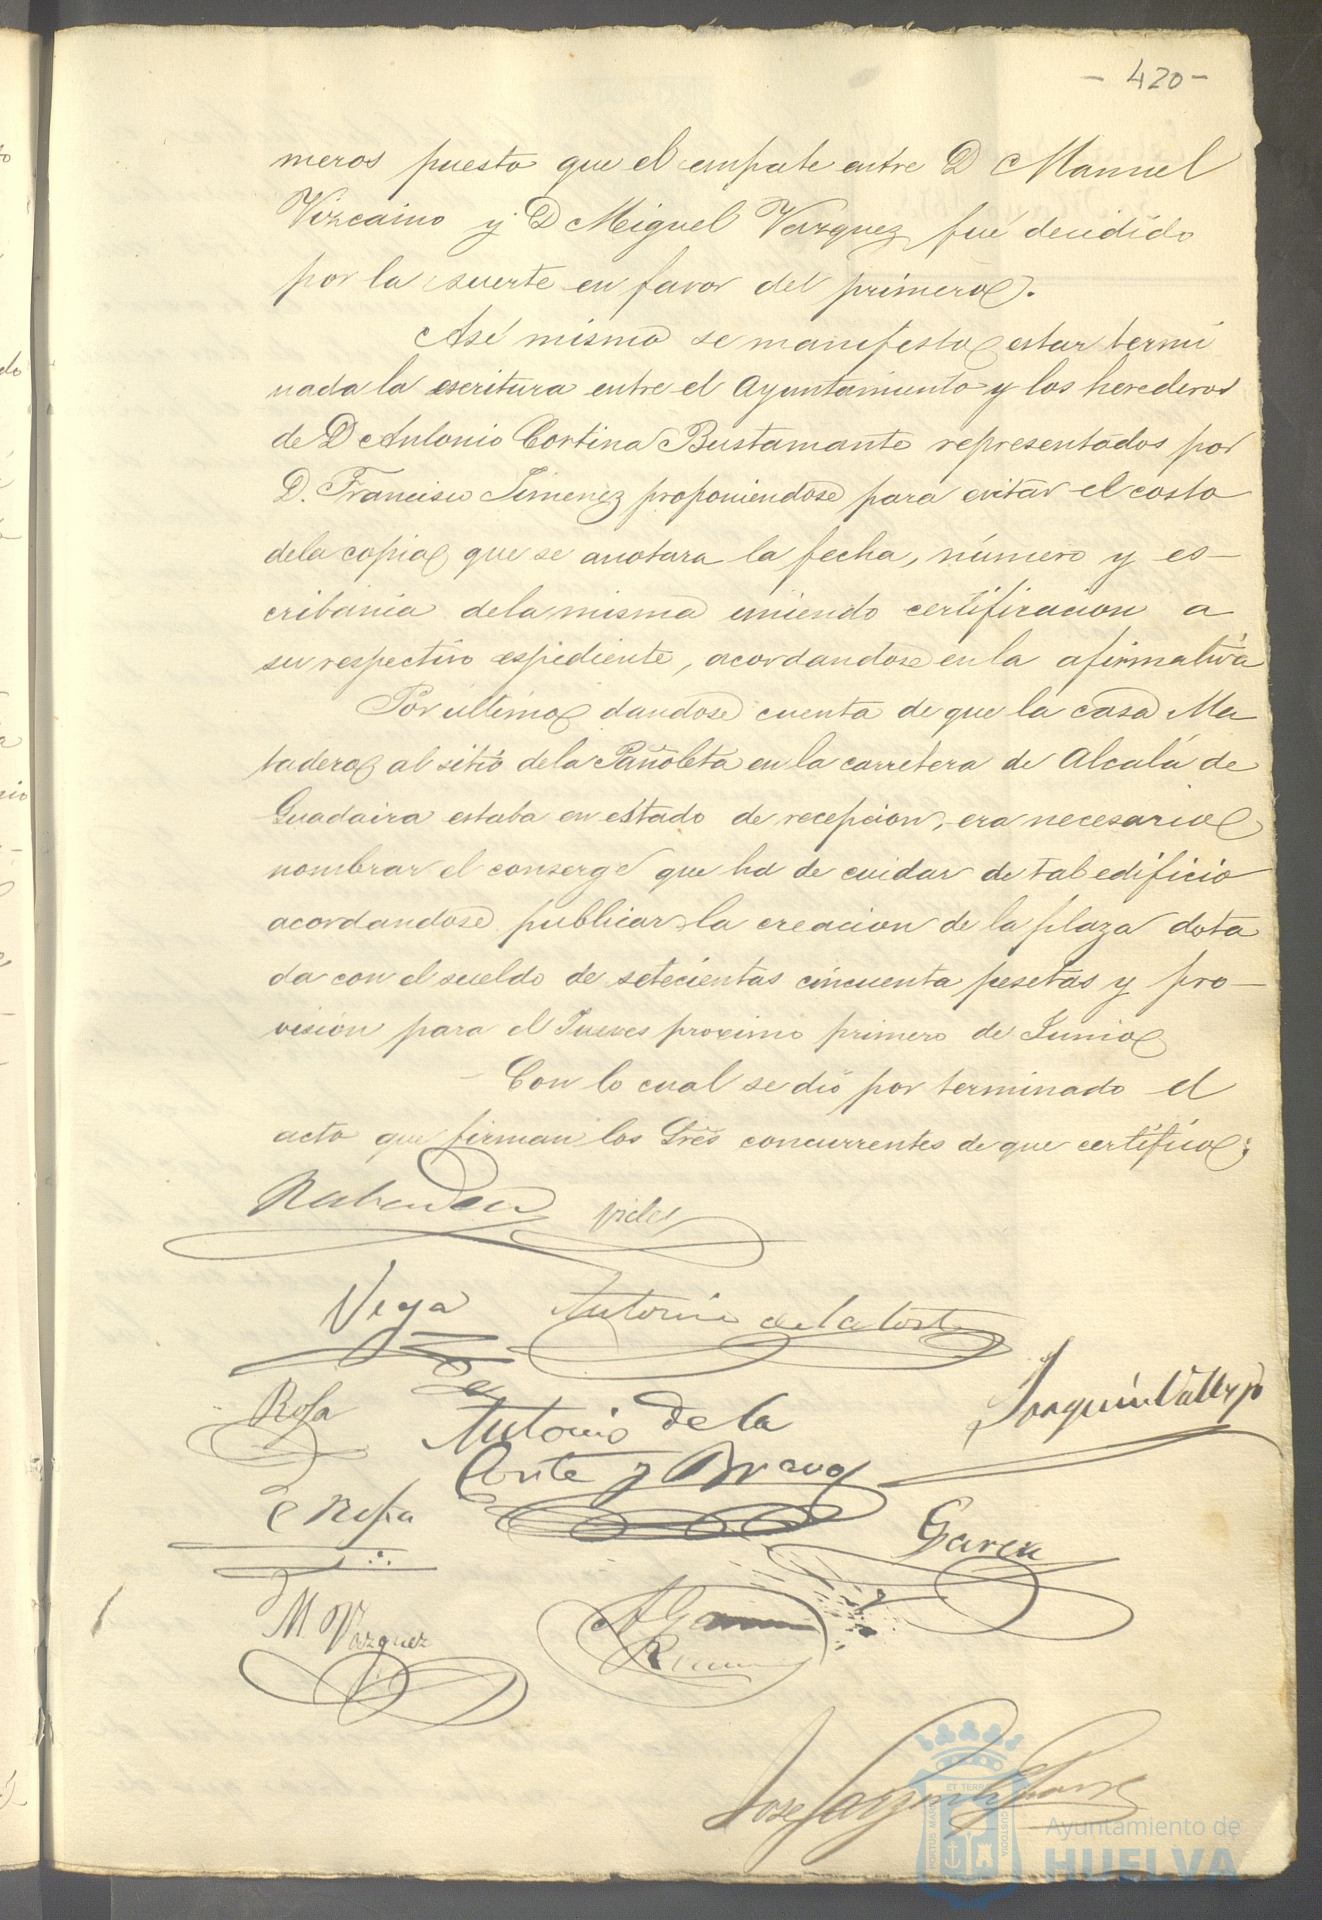 - 420 -
meros puesto que el empate entre D Manuel
Vizcaino y D Miguel Vazquez fué decidido
por la suerte en favor del primero.
Asi mismo se manifesto estar termi
nada la escritura entre el Ayuntamiento y los herederos
de D Antonio Cortina Bustamante representados por
D. Francisco Jimenez proponiendose para evitar el costo
de la copia que se anotara la fecha, número y es-
cribania de la misma uniendo certificacion a
su respectivo espediente, acordandose en la afirmativa
Por ultimo dandose cuenta de que la casa Ma
tadero al sitio de la Pañoleta en la carretera de Alcalá de
Guadaira estaba en estado de recepcion, era necesario
nombrar el conserge que ha de cuidar de tal edificio
acordandose publicar la creacion de la plaza dota
da con el sueldo de setecientas cincuenta pesetas y pro-
vision para el Jueves proximo primero de Junio
Con lo cual se dió por terminado el
acto que firman los Sres concurrentes de que certifico:
Vides
Vega Antonio de la Corte
Rofa Antonio de la Joaquin Vallejo
Corte y Bravo
Garcia
M. Vazquez
Jose
PORTUS MARIS
ET TERRAE
CUSTODIA
Ayuntamiento de
HUELVA